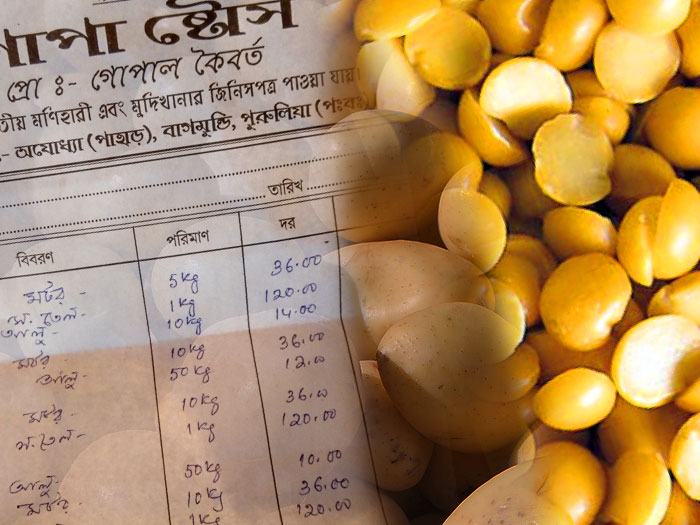 াপা ষ্টোর্স
প্রো ঃ- গোপাল কৈবর্ত
তীয় মণিহারী এবং মুদিখানার জিনিসপত্র পাওয়া যায়।
- অযোধ্যা (পাহাড়), বাগমুন্ডি, পুরুলিয়া (পঃবঃ)
তারিখ
বিবরণ পরিমাণ দর
মটর - 5kg 36.00
স. তেল - 1kg 120.00
আলু - 10kg 14.00
মটর - 10kg 36.00
আলু - 50kg 12.00
মটর - 10kg 36.00
স.তেল - 1kg 120.00
আলু - 50kg 10.00
মটর - 10kg 36.00
1kg 120.00